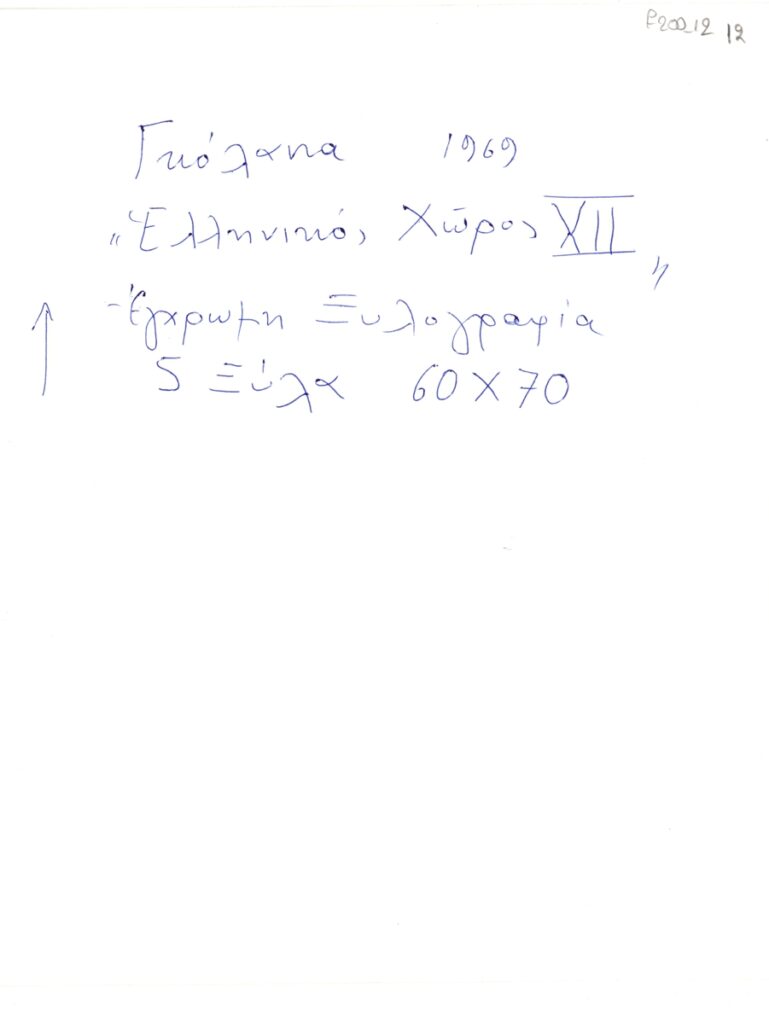 P200_12 12
Γκόλαπα 1969
„Ἑλληνικός Χῶρος XII„
Ἔγχρωμη Ξυλογραφία
5 Ξύλα 60 Χ 70